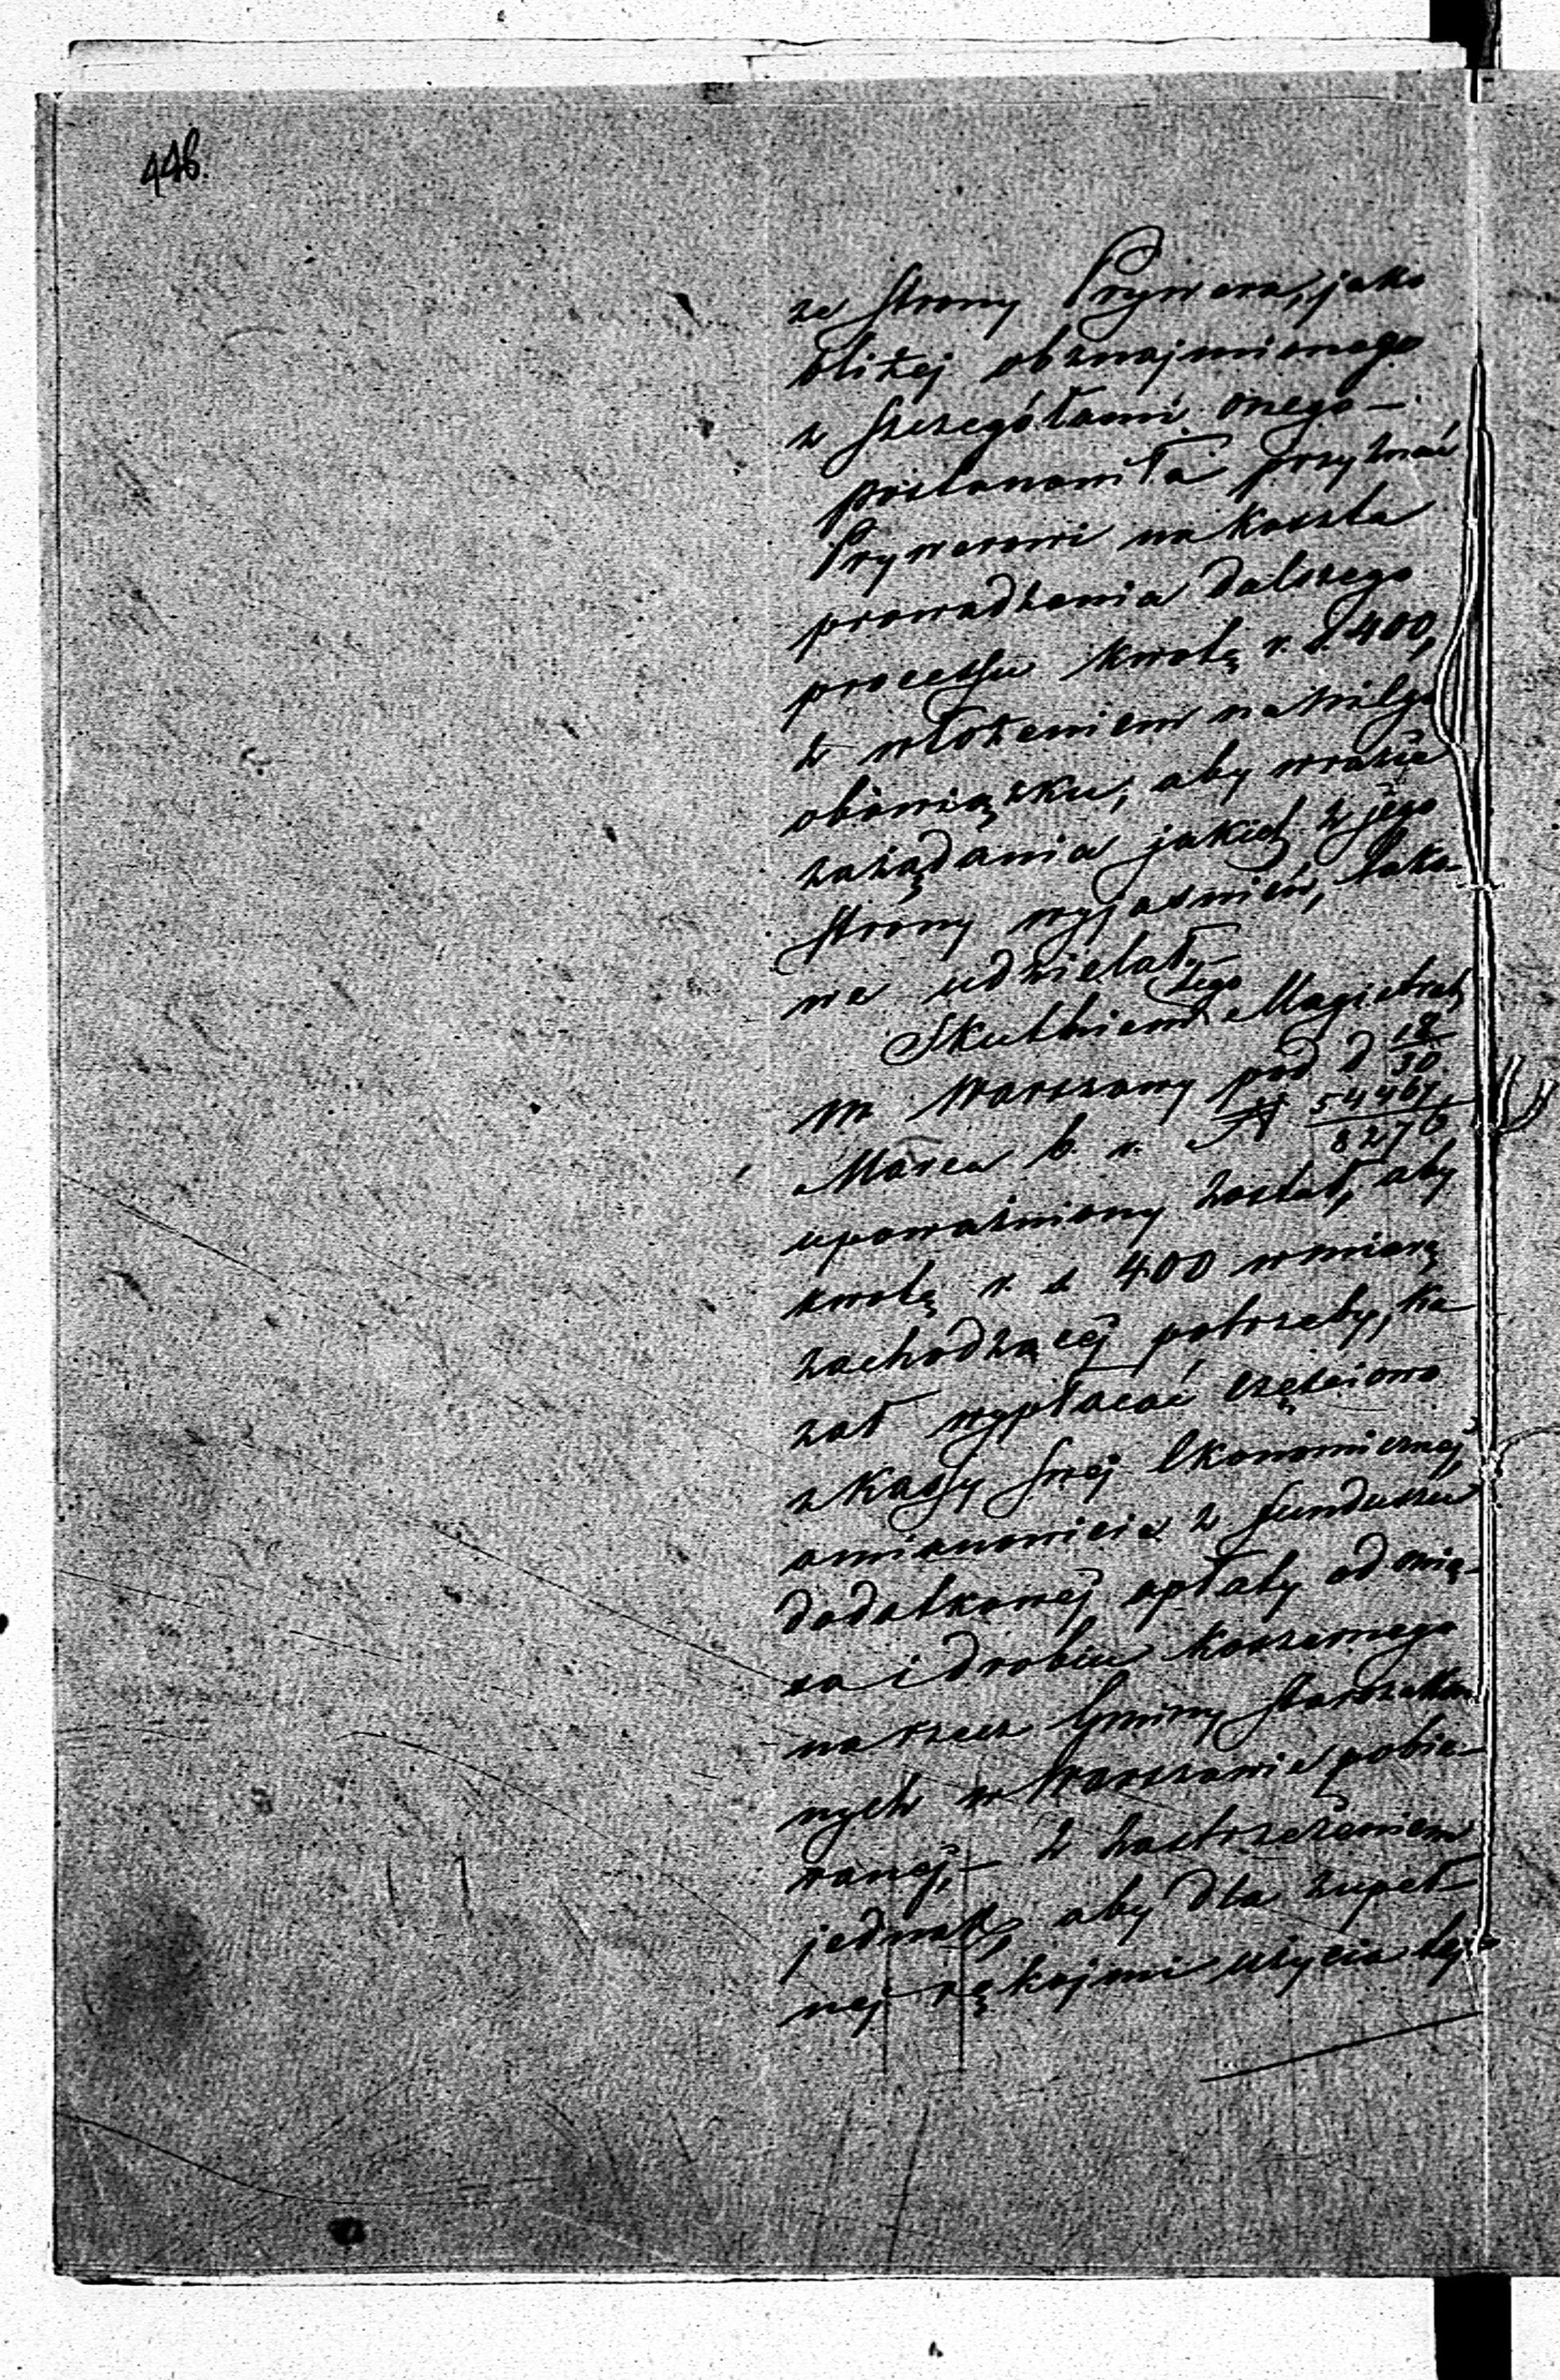 446.
ze strony Prywera, jako
bliżej obznajmionego
z szczegółami onego —
postanowiła przyznać
Prywerowi na koszta
prowadzenia dalszego
processu kwotę r. s. 400,
z włożeniem na niego
obowiązku, aby w razie
zażądania jakich z jego
strony wyjaśnień, tako-
we udzielał. —
Skutkiem tego Magistrat
m Warszawy pod d 18/30
Marca b. r. N 54467/8276
upoważniony został, aby
kwotę r. s 400 w miarę
zachodzącej potrzeby, ka
zał wypłacać częściowo
z kassy swej Ekonomicznej
a mianowicie z funduszu
dodatkowej opłaty od mię-
sa i drobiu koszernego
na rzecz Gminy Starozakon
nych w Warszawie pobie-
ranej, — z zastrzeżeniem
jednak, aby dla zupeł-
nej rękojmi użycia tego